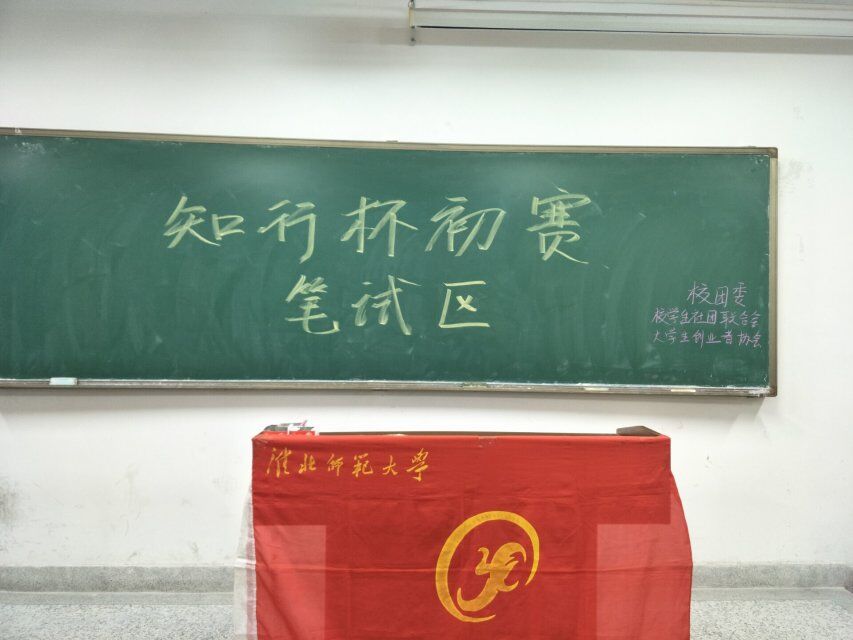 知行杯初赛
笔试区
校团委
校学生社团联合会
大学生创业者协会
淮北师范大学